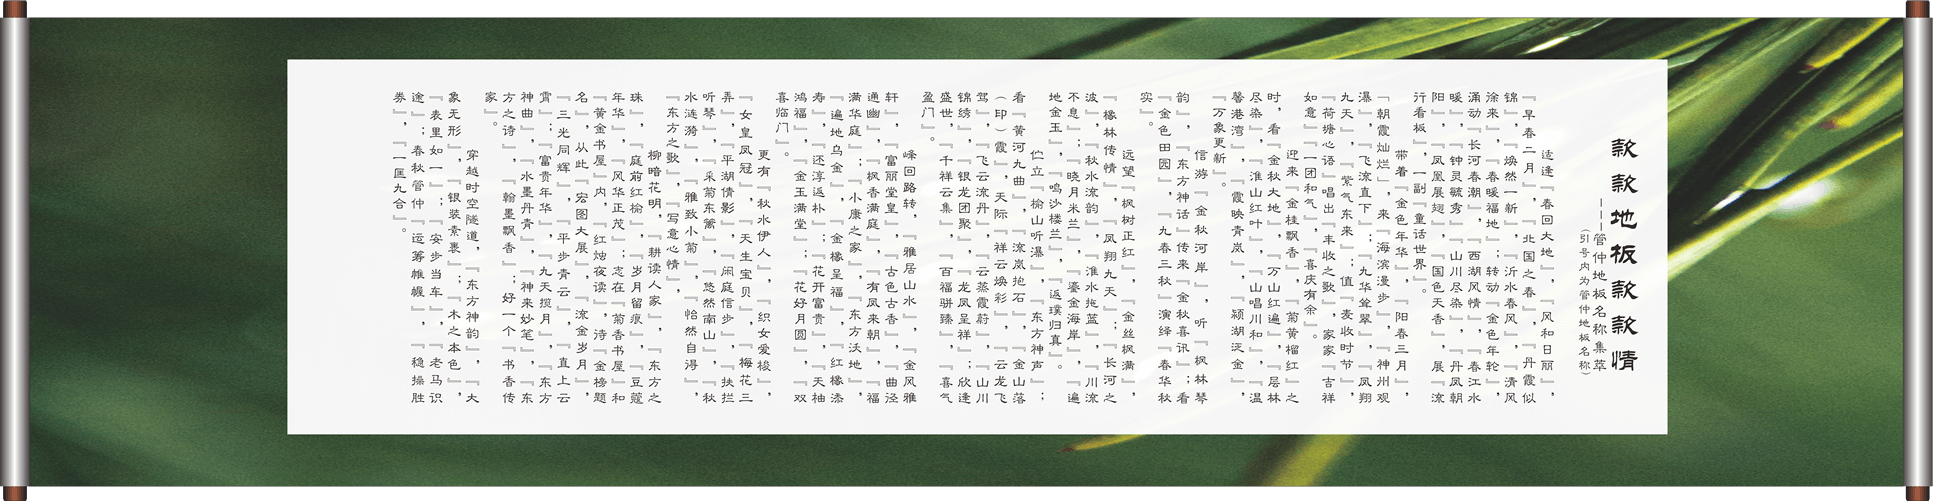 款款地板款款情
———管仲地板名称集萃
（引号内为管仲地板名称）
适逢『春回大地』，『风和日丽』，
『早春二月』，『北国之春』，『丹霞似
锦』，『焕然一新』，『沂水春风』，『清风
徐来』，『春暖福地』；转动『金色年轮』，
涌动『长河春潮』，『西湖风情』，『春江水
暖』，『钟灵毓秀』，『山川尽染』，『丹凤朝
阳』，『凤凰展翅』，『国色天香』，展『流
行看板』，一副『童话世界』。
带着『金色年华』，『阳春三月』，
『朝霞灿烂』，来『海滨漫步』，『神州观
瀑』，『飞流直下』；『九华耸翠』，『凤翔
九天』，『紫气东来』；值『麦收时节』，
『荷塘心语』唱出『丰收之歌』，家家『吉祥
如意』，『一团和气』，『喜庆有余』。
迎来『金桂飘香』，『菊黄榴红』之
时，看『金秋大地』，『万山红遍』，『层林
尽染』，『淮山红叶』，『山唱川和』，『温
馨港湾』，『霞映青岚』，『颍湖泛金』，
『万象更新』。
信游『金秋河岸』，听『枫林琴
韵』，『东方神话』传来『金秋喜讯』；看
『金色田园』，『九春三秋』演绎『春华秋
实』。
远望『枫树正红』，『金丝枫满』，
『橡林传情』，『凤翔九天』；『长河之
波』，『秋水流韵』，『淮水拖蓝』，『川流
不息』；『晓月米兰』，『鎏金海岸』，『遍
地金玉』，『鸣沙楼兰』，『返璞归真』。
伫立『榆山听瀑』，『东方神声』；
看『黄河九曲』，『流岚抱石』，『金山落
（印）霞』，天际『祥云焕彩』，『云龙飞
驾』，『飞云流丹』，『云蒸霞蔚』，『山川
锦绣』，『银龙团聚』，『龙凤呈祥』；欣逢
盛世，『千祥云集』，『百福骈臻』，『喜气
盈门』。
峰回路转，『雅居山水』，『金风雅
轩』，『富丽堂皇』，『古色古香』，『曲径
通幽』，『枫香满庭』，『有凤来朝』，『福
满华庭』；『小康之家』，『东方沃地』，
『遍地乌金』，『金橡呈福』，『红橡添
寿』，『还淳返朴』；『花开富贵』，『天柚
鸿福』，『金玉满堂』；『花好月圆』，『双
喜临门』。
更有『秋水伊人』，『织女爱梭』，
『女皇凤冠』，『天生宝贝』，『梅花三
弄』，『平湖倩影』，『闲庭信步』，『扶拦
听琴』，『采菊东篱』，『悠然南山』，『秋
水涟漪』，『雅致小菊』，『怡然自得』，
『东方之歌』，『写意心情』，
柳暗花明，『耕读人家』，『东方之
珠』，『庭前红榆』，『岁月留痕』，『豆蔻
年华』，『风华正茂』；志在『菊香书屋』和
『黄金书屋』内，『红烛夜读』，诗『金榜题
名』，从此『宏图大展』，『流金岁月』，
『三光同辉』，『平步青云』，『直上云
霄』；『富贵年华』，『九天揽月』，『东方
神曲』，『水墨丹青』，『神来妙笔』，『东
方之诗』，『翰墨飘香』；好一个『书香传
家』。
穿越时空隧道，『东方神韵』，『大
象无形』，『银装素裹』；『木之本色』，
『表里如一』；『安步当车』，『老马识
途』；春秋管仲『运筹帷幄』，『稳操胜
券』，『一匡九合』。